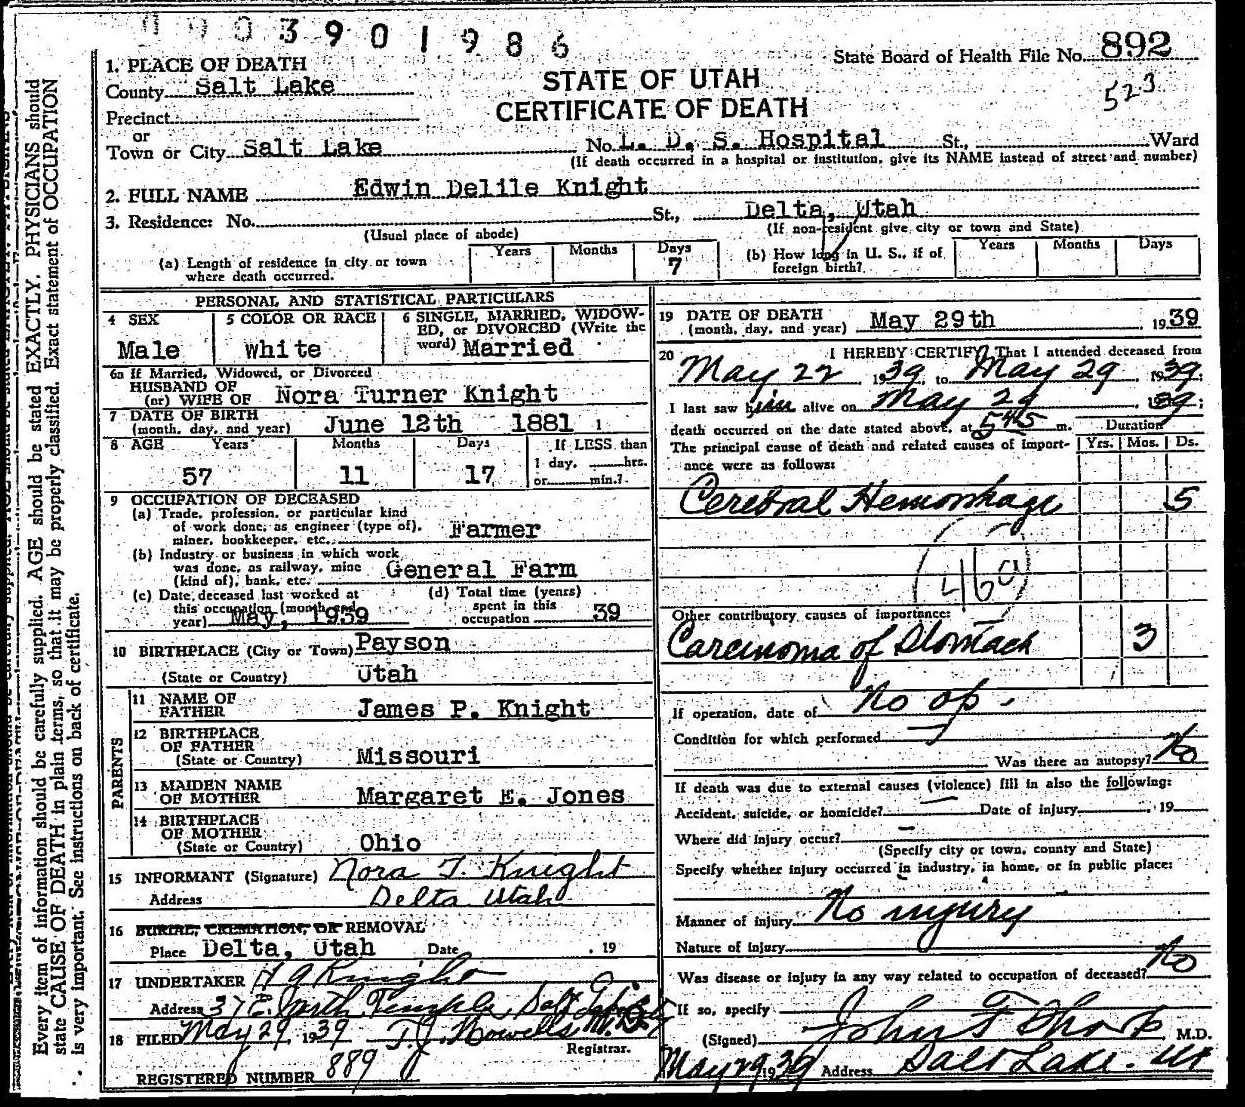 0903901986
State Board of Health File No. 892
523
STATE OF UTAH
CERTIFICATE OF DEATH
1. PLACE OF DEATH
County Salt Lake
Precinct
or
Town or City Salt Lake No. L. D. S. Hospital St., Ward
(If death occurred in a hospital or institution, give its NAME instead of street and number)
2. FULL NAME Edwin Delile Knight
3. Residence: No. St., Delta, Utah
(Usual place of abode) (If non-resident give city or town and State)
(a) Length of residence in city or town where death occurred. Years Months Days 7
(b) How long in U. S., if of foreign birth? Years Months Days
PERSONAL AND STATISTICAL PARTICULARS
4 SEX Male
5 COLOR OR RACE White
6 SINGLE, MARRIED, WIDOWED, or DIVORCED (Write the word) Married
6a If Married, Widowed, or Divorced
HUSBAND OF
(or) WIFE OF Nora Turner Knight
7 DATE OF BIRTH
(month, day, and year) June 12th 1881
8 AGE Years 57 Months 11 Days 17 If LESS than 1 day, hrs. or min.?
9 OCCUPATION OF DECEASED
(a) Trade, profession, or particular kind
of work done; as engineer (type of),
miner, bookkeeper, etc. Farmer
(b) Industry or business in which work
was done, as railway, mine
(kind of), bank, etc. General Farm
(c) Date deceased last worked at
this occupation (month and
year) May, 1939
(d) Total time (years)
spent in this
occupation 39
10 BIRTHPLACE (City or Town) Payson
(State or Country) Utah
PARENTS
11 NAME OF
FATHER James P. Knight
12 BIRTHPLACE
OF FATHER
(State or Country) Missouri
13 MAIDEN NAME
OF MOTHER Margaret E. Jones
14 BIRTHPLACE
OF MOTHER
(State or Country) Ohio
15 INFORMANT (Signature) Nora T. Knight
Address Delta Utah
16 BURIAL, CREMATION, OR REMOVAL
Place Delta, Utah Date , 19
17 UNDERTAKER Knight
Address 37 E. North Temple, Salt
18 FILED May 29, 1939 T. J. Howells M.D.
Registrar.
REGISTERED NUMBER 889
19 DATE OF DEATH
(month, day, and year) May 29th 1939
20 I HEREBY CERTIFY, That I attended deceased from
May 22, 1939, to May 29, 1939;
I last saw him alive on May 29, 1939;
death occurred on the date stated above, at 545 m.
Duration
The principal cause of death and related causes of importance were as follows: Yrs. Mos. Ds.
Cerebral Hemorrhage 5
Other contributory causes of importance:
Carcinoma of Stomach 3
If operation, date of No op.
Condition for which performed
Was there an autopsy? No
If death was due to external causes (violence) fill in also the following:
Accident, suicide, or homicide? Date of injury , 19
Where did injury occur?
(Specify city or town, county and State)
Specify whether injury occurred in industry, in home, or in public place:
Manner of injury No injury
Nature of injury
Was disease or injury in any way related to occupation of deceased? No
If so, specify
(Signed) John F. Sharp M.D.
May 29 1939 Address Salt Lake. Ut
Every item of information should be carefully supplied. AGE should be stated EXACTLY. PHYSICIANS should
state CAUSE OF DEATH in plain terms, so that it may be properly classified. Exact statement of OCCUPATION
is very important. See instructions on back of certificate.